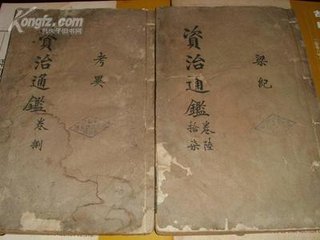 Kongfz.com
孔夫子旧书网
資治通鑑
卷捌
考異
資治通鑑
卷陸
拾柒
梁紀